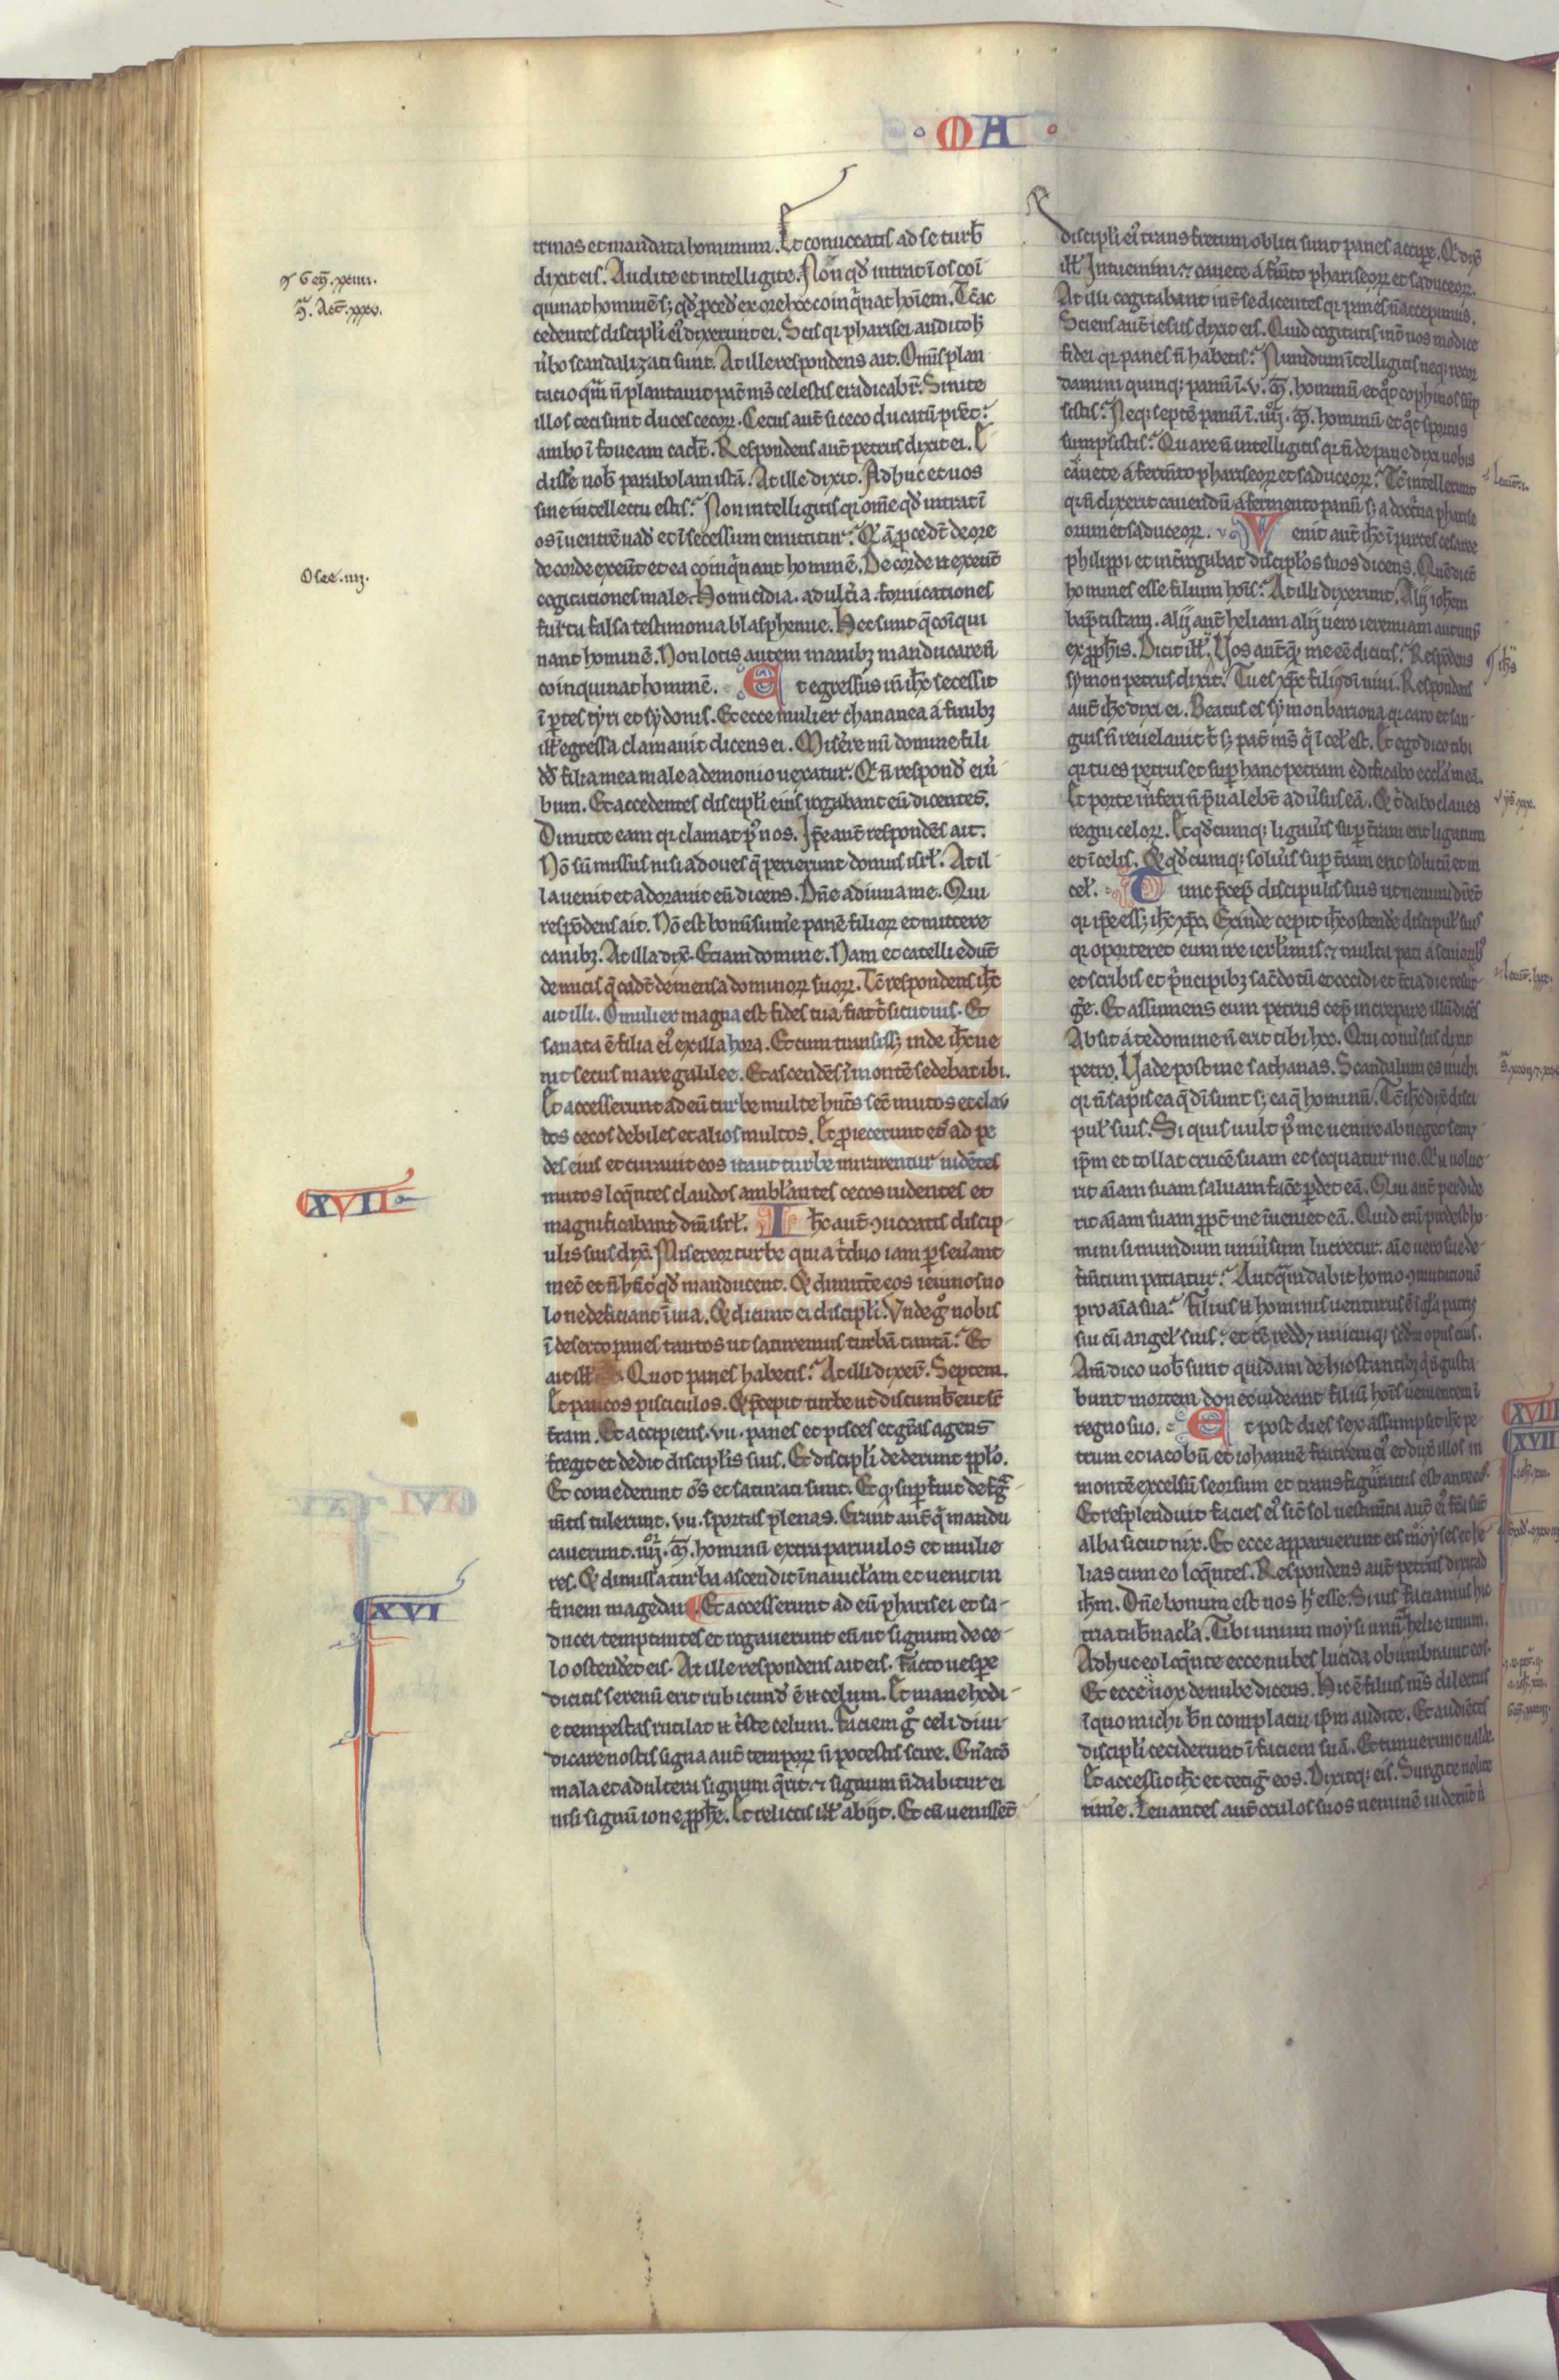 · MA ·
ctrinas et mandata hominum. Et conuocatis ad se turb̄
dixit eis. Audite et intelligite. Non qd̄ intrat ī os coī
quinat hominē s; qd̄ ꝓcedˀ ex ore hoc coinq̇nat hoīem. Tc̄ ac
cedentes discipl̄i eiꝰ dixerunt ei. Scis qr pharisei audito h̄
ūbo scandalizati sunt. At ille respondens ait. Omīs plan
tatio qm̄ n̄ plantauit pat̄ mīs celestis eradicabr̄. Sinite
illos ceci sunt duces cecoꝝ. Cecus aut̄ si ceco ducatū p̄stet
ambo ī foueam cadt̄. Respondens aut̄ petrus dixit ei. E
disse nob̄ parabolam istā. At ille dixit. Adhuc et uos
sine intellectu estis? Non intelligitis qr om̄e qd̄ intrat ī
os ī uentrē uadˀ et ī secessum emittitur? Q̄ ā ꝓcedt̄ de ore
de corde exeūt et ea coinq̇nant hominē. De corde n̄ exeūt
cogitationes male. Homicidia. adult̄ia. fornicationes
furta falsa testimonia blasphemie. Hec sunt q̄ coīqui
nant hominē. Non lotis autem manibꝫ manducare n̄
coinquinat hominē. Et egressus īn ih̄c secessit
ī ꝑtes tyri et sydonis. Et ecce mulier chananea a finibꝫ
ill̄ egressa clamauit dicens ei. Miserere mī domine fili
dd̄ filia mea male a demonio uexatur. Q̄ n̄ respondˀ ei ū
bum. Et accedentes discipl̄i eius rogabant eū dicentes.
Dimitte eam qr clamat pꝰ nos. Ip̄e aut̄ respondēs ait.
Nō sū missus nisi ad oues q̄ perierunt domus isrl̄. At il
la uenit et adorauit eū dicens. Dn̄e adiuua me. Qui
respōdens ait. Nō est bonū sum̄e panē filioꝝ et mittere
canibꝫ. At illa dix̄. Etiam domine. Nam et catelli edūt
de micis q̄ cadt̄ de mensa dominoꝝ suoꝝ. Tc̄ respondens ih̄c
ait illi. O mulier magna est fides tua fiat t̄ sicut uis. Et
sanata ē filia eiꝰ ex illa hora. Et cum transiss; inde ih̄c ue
nit secus mare galilee. Et ascendēs ī montē sedebat ibi.
Et accesserunt ad eū turbe multe hn̄tes sec̄ mutos et clau
dos cecos debiles et alios multos. Et ꝓiecerunt eos ad pe
des eius et curauit eos ita ut turbe mirarentur uidētes
mutos loq̄ntes claudos ambl̄antes cecos uidentes et
magnificabant dm̄ isrl̄. Ih̄c aut̄ ꝯuocatis discip
ulis suis dix̄. Misereor turbe quia t̄duo iam ꝑseuant
mec̄ et n̄ hn̄t qd̄ manducent. Et dimitte̅ eos ieiunos no
lo ne deficiant ī uia. Et dicunt ei discipl̄i. Vnde gͦ nobis
ī deserto panes tantos ut saturemus turbā tantā? Et
ait ill̄ Quot panes habetis? At illi dixer̄. Septem.
Et paucos pisciculos. Et p̄cepit turbe ut discumb̄ent sr̄
t̄ram. Et accipiens .vii. panes et pisces et gr̄as agens
fregit et dedit discipl̄is suis. Et discipl̄i dederunt ppl̄o.
Et comederunt oēs et saturati sunt. Et qͦ suꝑfuit de frag
m̄tis tulerunt .vii. sportas plenas. Erant aut̄ q̄ mandu
cauerunt .iiii. m̄. hominū extra paruulos et mulie
res. Et dimissa turba ascendit ī nauicl̄am et uenit in
finem magedan. Et accesserunt ad eū pharisei et sa
ducei temptantes et rogauerunt eū ut signum de ce
lo ostend̄et eis. At ille respondens ait eis. Facto uespe
dicitis serenū erit rubicundˀ ē n̄ celum. Et mane hodi
e tempestas rutilat n̄ t̄ste celum. Faciem gͦ celi diiu
dicare nostis signa aut̄ tempoꝝ n̄ potestis scire. Gn̄atō
mala et adultera signum q̄rit ⁊ signum n̄ dabitur ei
nisi signū ione ꝓph̄e. Et relictis ill̄ abijt. Et cū uenissēt
discipl̄i eiꝰ trans fretum obliti sunt panes accipe. Q̄ dix̄
ill̄. Intuemini ⁊ cauete a fm̄to phariseoꝝ et saduceoꝝ.
At illi cogitabant int̄ se dicentes qr panes n̄ accepimus.
Sciens aut̄ iesus dixit eis. Quid cogitatis int̄ uos modice
fidei qr panes n̄ habetis? Nundum ītelligitis neqꝫ recor
damini quinqꝫ panū ī .v. m̄. hominū et qͦt cophinos sūp
sistis? Neqꝫ septē panū ī .iiii. m̄. hominū et qͦt sportas
sumpsistis? Quare n̄ intelligitis qr n̄ de pane dixi uobis
cauete a fermto phariseoꝝ et saduceoꝝ? Tc̄ intellexerunt
qr n̄ dixerit cauendū a fermento panū s; a doctͥna pharise
orum et saduceoꝝ. Venit aut̄ ih̄c ī partes cesaree
philippi et int̄rogabat discipl̄os suos dicens. Quē dicūt
homines esse filium hoīs? At illi dixerunt. Alij ioh̄em
baptistam. alij aut̄ heliam alij uero ieremiam aut unū
ex ꝓph̄is. Dicit ill̄. Vos aut̄ q̄ꝫ me eē dicitis? Respōdens
symon petrus dixit. Tu es xp̄c filiꝰ dī uiui. Respondens
aut̄ ih̄c dixi ei. Beatus es symon bariona qr caro et san
guis n̄ reuelauit t̄ s; pat̄ mīs q̄ ī cel̄ est. Et ego dico tibi
qr tu es petrus et suꝑ hanc petram edificabo eccl̄am meā.
Et porte inferi n̄ p̄ualebt̄ aduersus eā. Et t̄ dabo claues
regni celoꝝ. Et qd̄cumqꝫ ligauīs suꝑ t̄ram erit ligatum
et ī celis. Et qd̄cumqꝫ soluīs suꝑ t̄ram erit solutū et in
cel̄. Tunc p̄cep̄ discipulis suis ut nemini dic̄ent
qr ip̄e ess; ih̄c xp̄c. Exinde cepit ih̄c ostendˀe discipul̄ suis
qr oporteret eum ire ierl̄imis ⁊ multa pati a seniorib̄
et scribis et p̄ncipibꝫ sac̄dotū et occidi et t̄cia die resur
ge̅. Et assumens eum petrus cep̄ increpare illū dicēs
Absit a te domine n̄ erit tibi hoc. Qui conuersus dixit
petro. Vade post me sathanas. Scandalum es michi
qr n̄ sapis ea q̄ dī sunt s; ea q̄ hominū. Tc̄ ih̄c dix̄ disci
pul̄ suis. Si quis uult pꝰ me uenire abneget semꝫ
ip̄m et tollat crucē suam et sequatur me. Q̄ n̄ uolue
rit aīam suam saluam fac̄e ꝑdet eā. Qui aut̄ perdide
rit aīam suam ꝓpt̄ me īueniet eā. Quid enī prodest ho
mini si mundum uniuersum lucretur. aīe uero sue de
t̄m̄tum patiatur? Aut quam dabit homo ꝯmutationē
pro aīa sua? Filius n̄ hominis uenturus ē ī gl̄a patris
sui cū angel̄ suis: et tc̄ reddꝫ unicuiqꝫ scdm opus eius.
Am̄ dico uob̄ sunt quidam de hic stantibꝫ q̄ n̄ gusta
bunt mortem donec uideant filiū hoīs uenientem ī
regno suo. Et post dies sex assumpsit ih̄c pe
trum et iacobū et iohannē fratrem eiꝰ et duxˀ illos in
montē excelsū seorsum et transfiguratus est ante eos.
Et resplenduit facies eiꝰ sic̄ sol uestim̄ta aut̄ eiꝰ fc̄a sūt
alba sicut nix. Et ecce apparuerunt eis moyses et he
lias cum eo loq̄ntes. Respondens aut̄ petrus dixit ad
ih̄m. Dn̄e bonum est nos hͦ esse. Si uis faciamus hic
tria tab̄nacl̄a. Tibi unum moysi unū helie unum.
Adhuc eo loq̄nte ecce nubes lucida obumbrauit eos.
Et ecce uox de nube dicens. Hic ē filius mīs dilectus
ī quo michi bn̄ complacui ip̄m audite. Et audiētes
discipl̄i ceciderunt ī faciem suā. Et timuerunt ualde.
Et accessit ih̄c et tetigˀ eos. Dixitqꝫ eis. Surgite nolite
tim̄e. Leuantes aut̄ oculos suos neminē uiderūt n̄
Osee .iiij.
XVII
XVI
XVIII
XVII